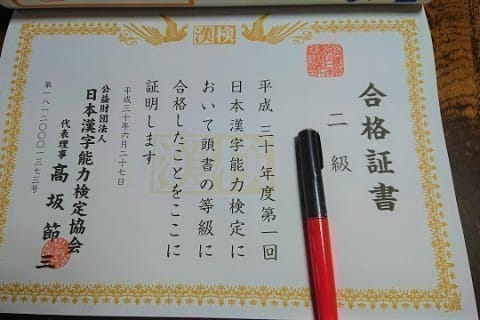 漢検
合格証書
二級
平成三十年度第一回
日本漢字能力検定に
おいて頭書の等級に
合格したことをここに
証明します
平成三十年六月二十七日
公益財団法人
日本漢字能力検定協会
代表理事 髙坂節三
第一八一二〇〇〇一三七三号